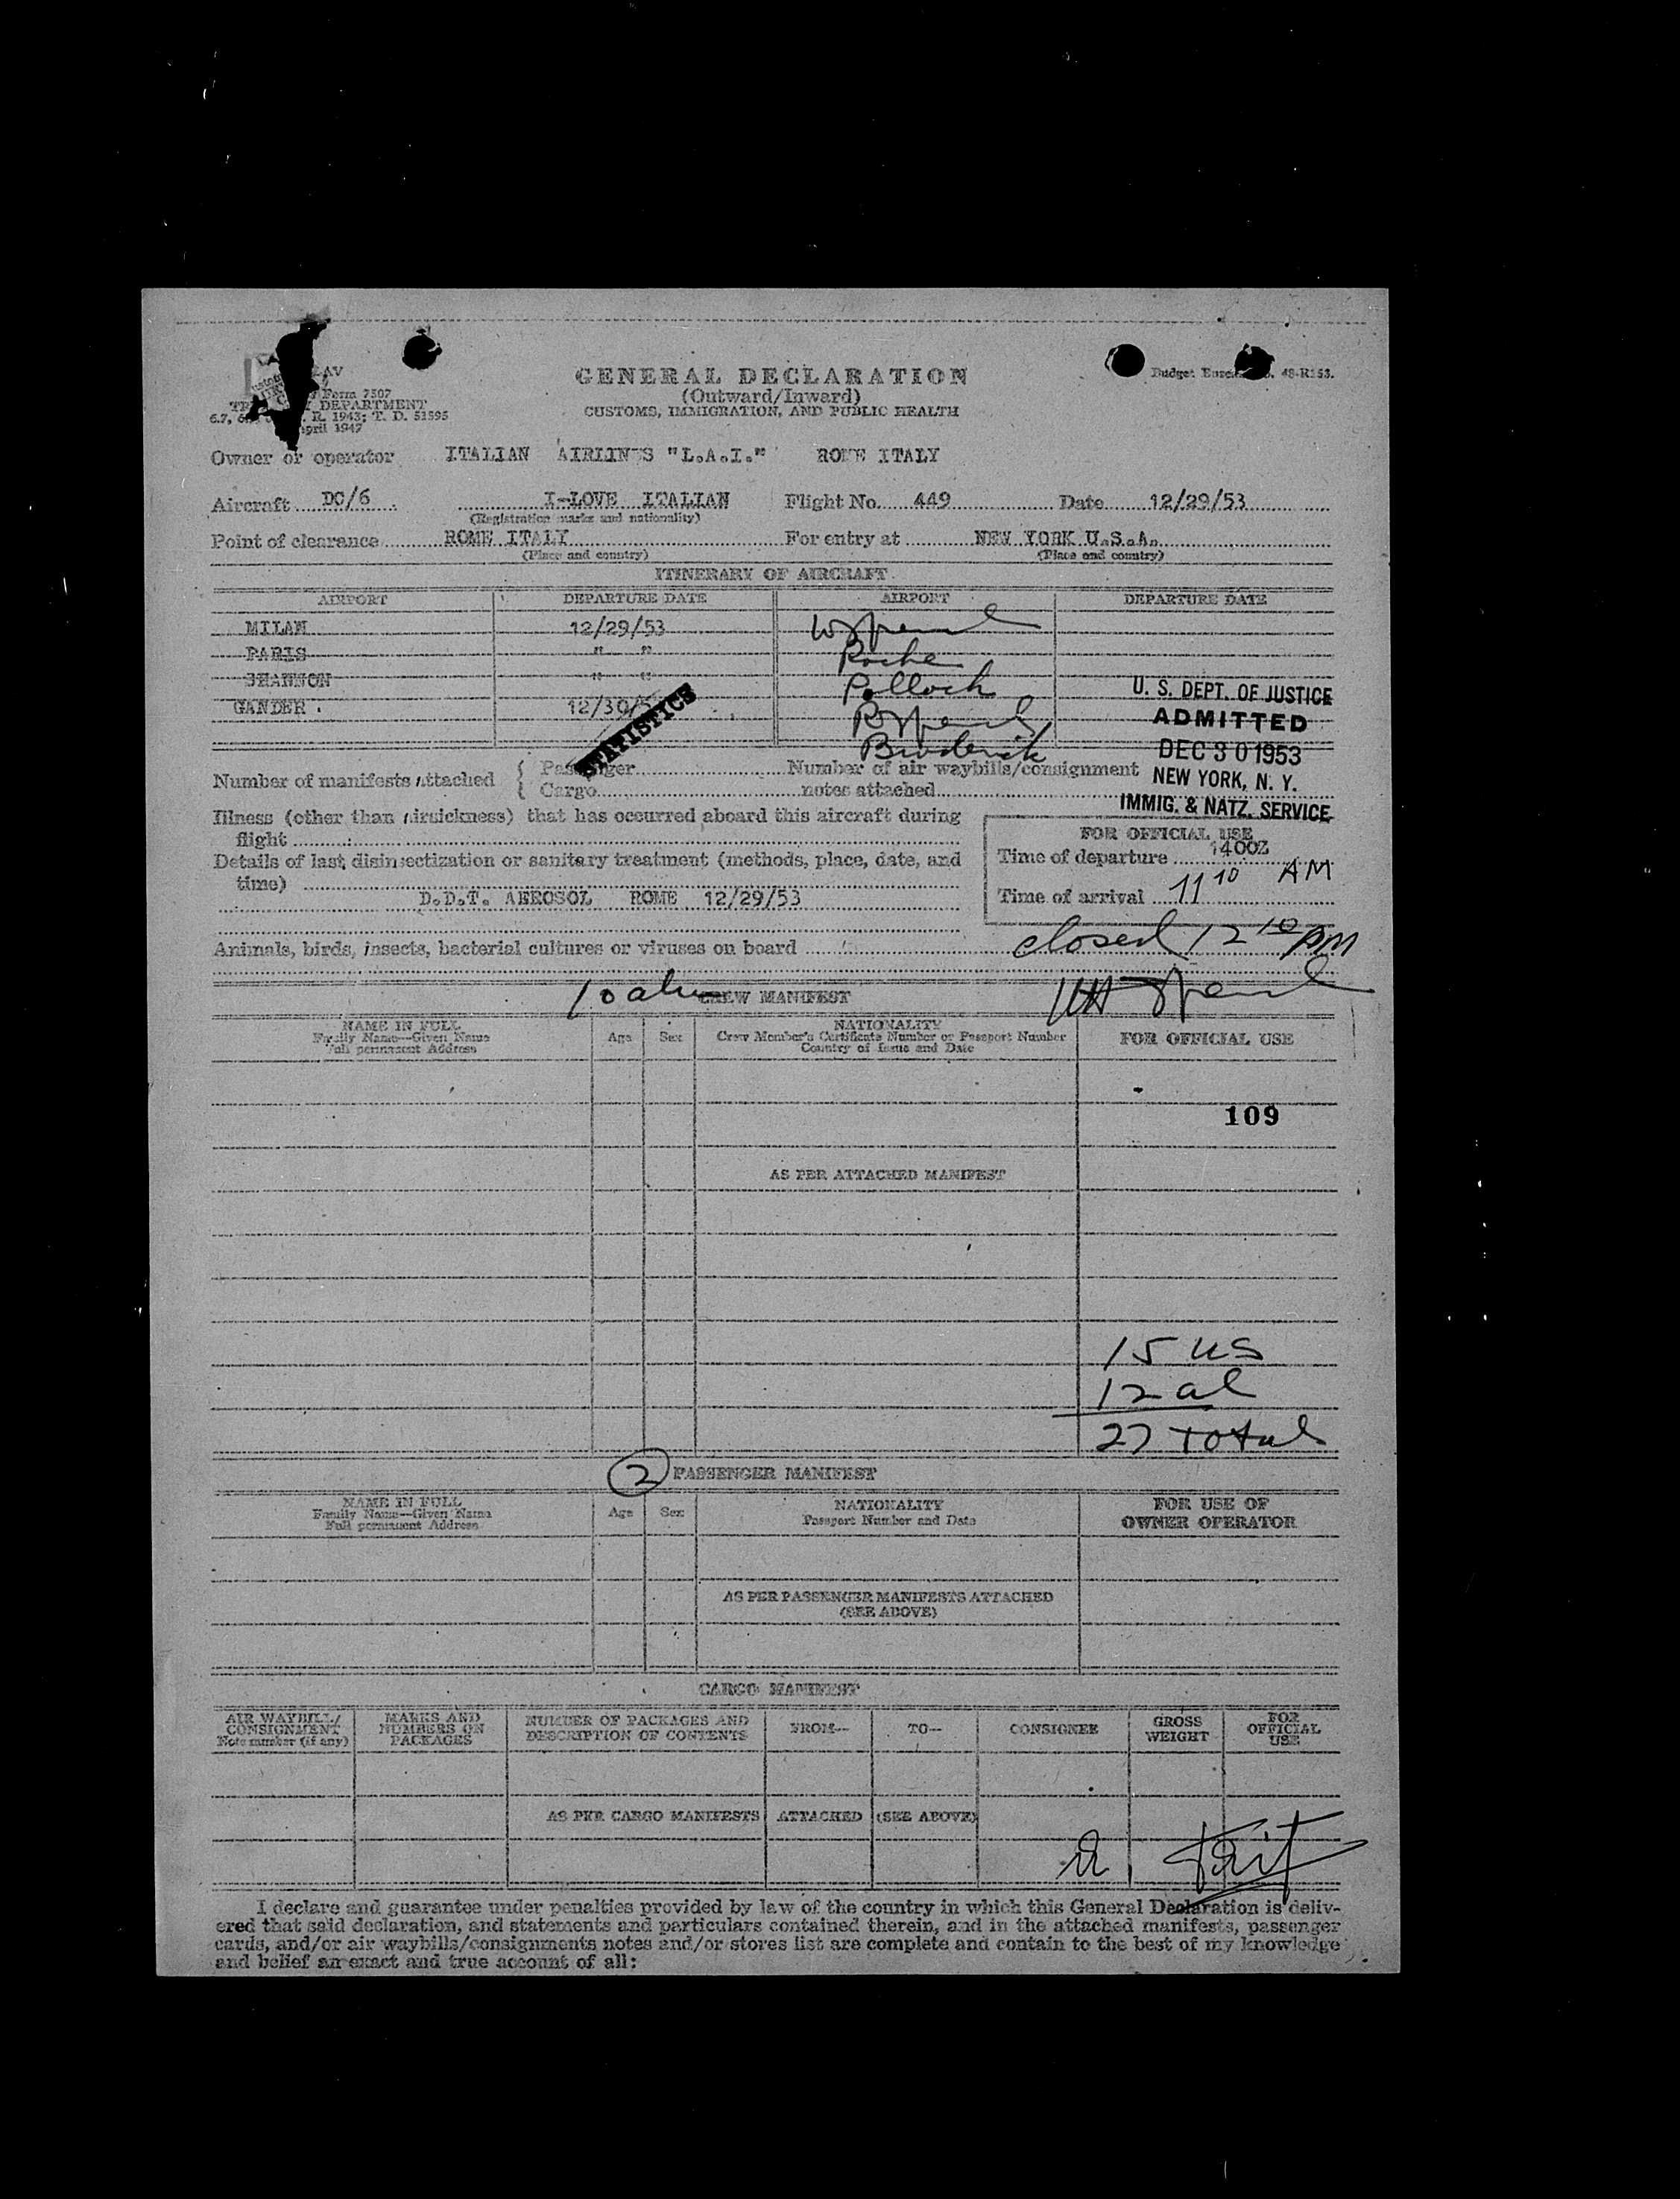 GENERAL DECLARATION
(Outward/Inward)
CUSTOMS, IMMIGRATION, AND PUBLIC HEALTH
Budget 48-R153.
Form 7507
DEPARTMENT
R. 1943; T. D. 51595
April 1947
Owner or operator ITALIAN AIRLINES "L.A.I." ROME ITALY
Aircraft DC/6 I-LOVE ITALIAN Flight No. 449 Date 12/29/53
(Registration marks and nationality)
Point of clearance ROME ITALY For entry at NEW YORK U.S.A.
(Place and country) (Place and country)
ITINERARY OF AIRCRAFT
AIRPORT DEPARTURE DATE AIRPORT DEPARTURE DATE
MILAN 12/29/53
PARIS " " Roche
SHANNON " " Pollock
GANDER 12/30/5
Broderick
STATISTICS
U. S. DEPT. OF JUSTICE
ADMITTED
DEC 30 1953
NEW YORK, N. Y.
IMMIG. & NATZ. SERVICE
Number of manifests attached { Passenger Number of air waybills/consignment
{ Cargo notes attached
Illness (other than airsickness) that has occurred aboard this aircraft during
flight
Details of last disinsectization or sanitary treatment (methods, place, date, and
time)
D.D.T. AEROSOL ROME 12/29/53
FOR OFFICIAL USE
Time of departure 1400Z
Time of arrival 11 10 AM
Animals, birds, insects, bacterial cultures or viruses on board
closed 12 10 PM
CREW MANIFEST
NAME IN FULL Age Sex NATIONALITY FOR OFFICIAL USE
Family Name—Given Name Crew Member's Certificate Number or Passport Number
Full permanent Address Country of Issue and Date
109
AS PER ATTACHED MANIFEST
15 US
12 al
27 total
2 PASSENGER MANIFEST
NAME IN FULL Age Sex NATIONALITY FOR USE OF
Family Name—Given Name Passport Number and Date OWNER OPERATOR
Full permanent Address
AS PER PASSENGER MANIFESTS ATTACHED
(SEE ABOVE)
CARGO MANIFEST
AIR WAYBILL/ MARKS AND NUMBER OF PACKAGES AND FROM— TO— CONSIGNEE GROSS FOR
CONSIGNMENT NUMBERS ON DESCRIPTION OF CONTENTS WEIGHT OFFICIAL
Note number (if any) PACKAGES USE
AS PER CARGO MANIFESTS ATTACHED (SEE ABOVE)
I declare and guarantee under penalties provided by law of the country in which this General Declaration is deliv-
ered that said declaration, and statements and particulars contained therein, and in the attached manifests, passenger
cards, and/or air waybills/consignments notes and/or stores list are complete and contain to the best of my knowledge
and belief an exact and true account of all: